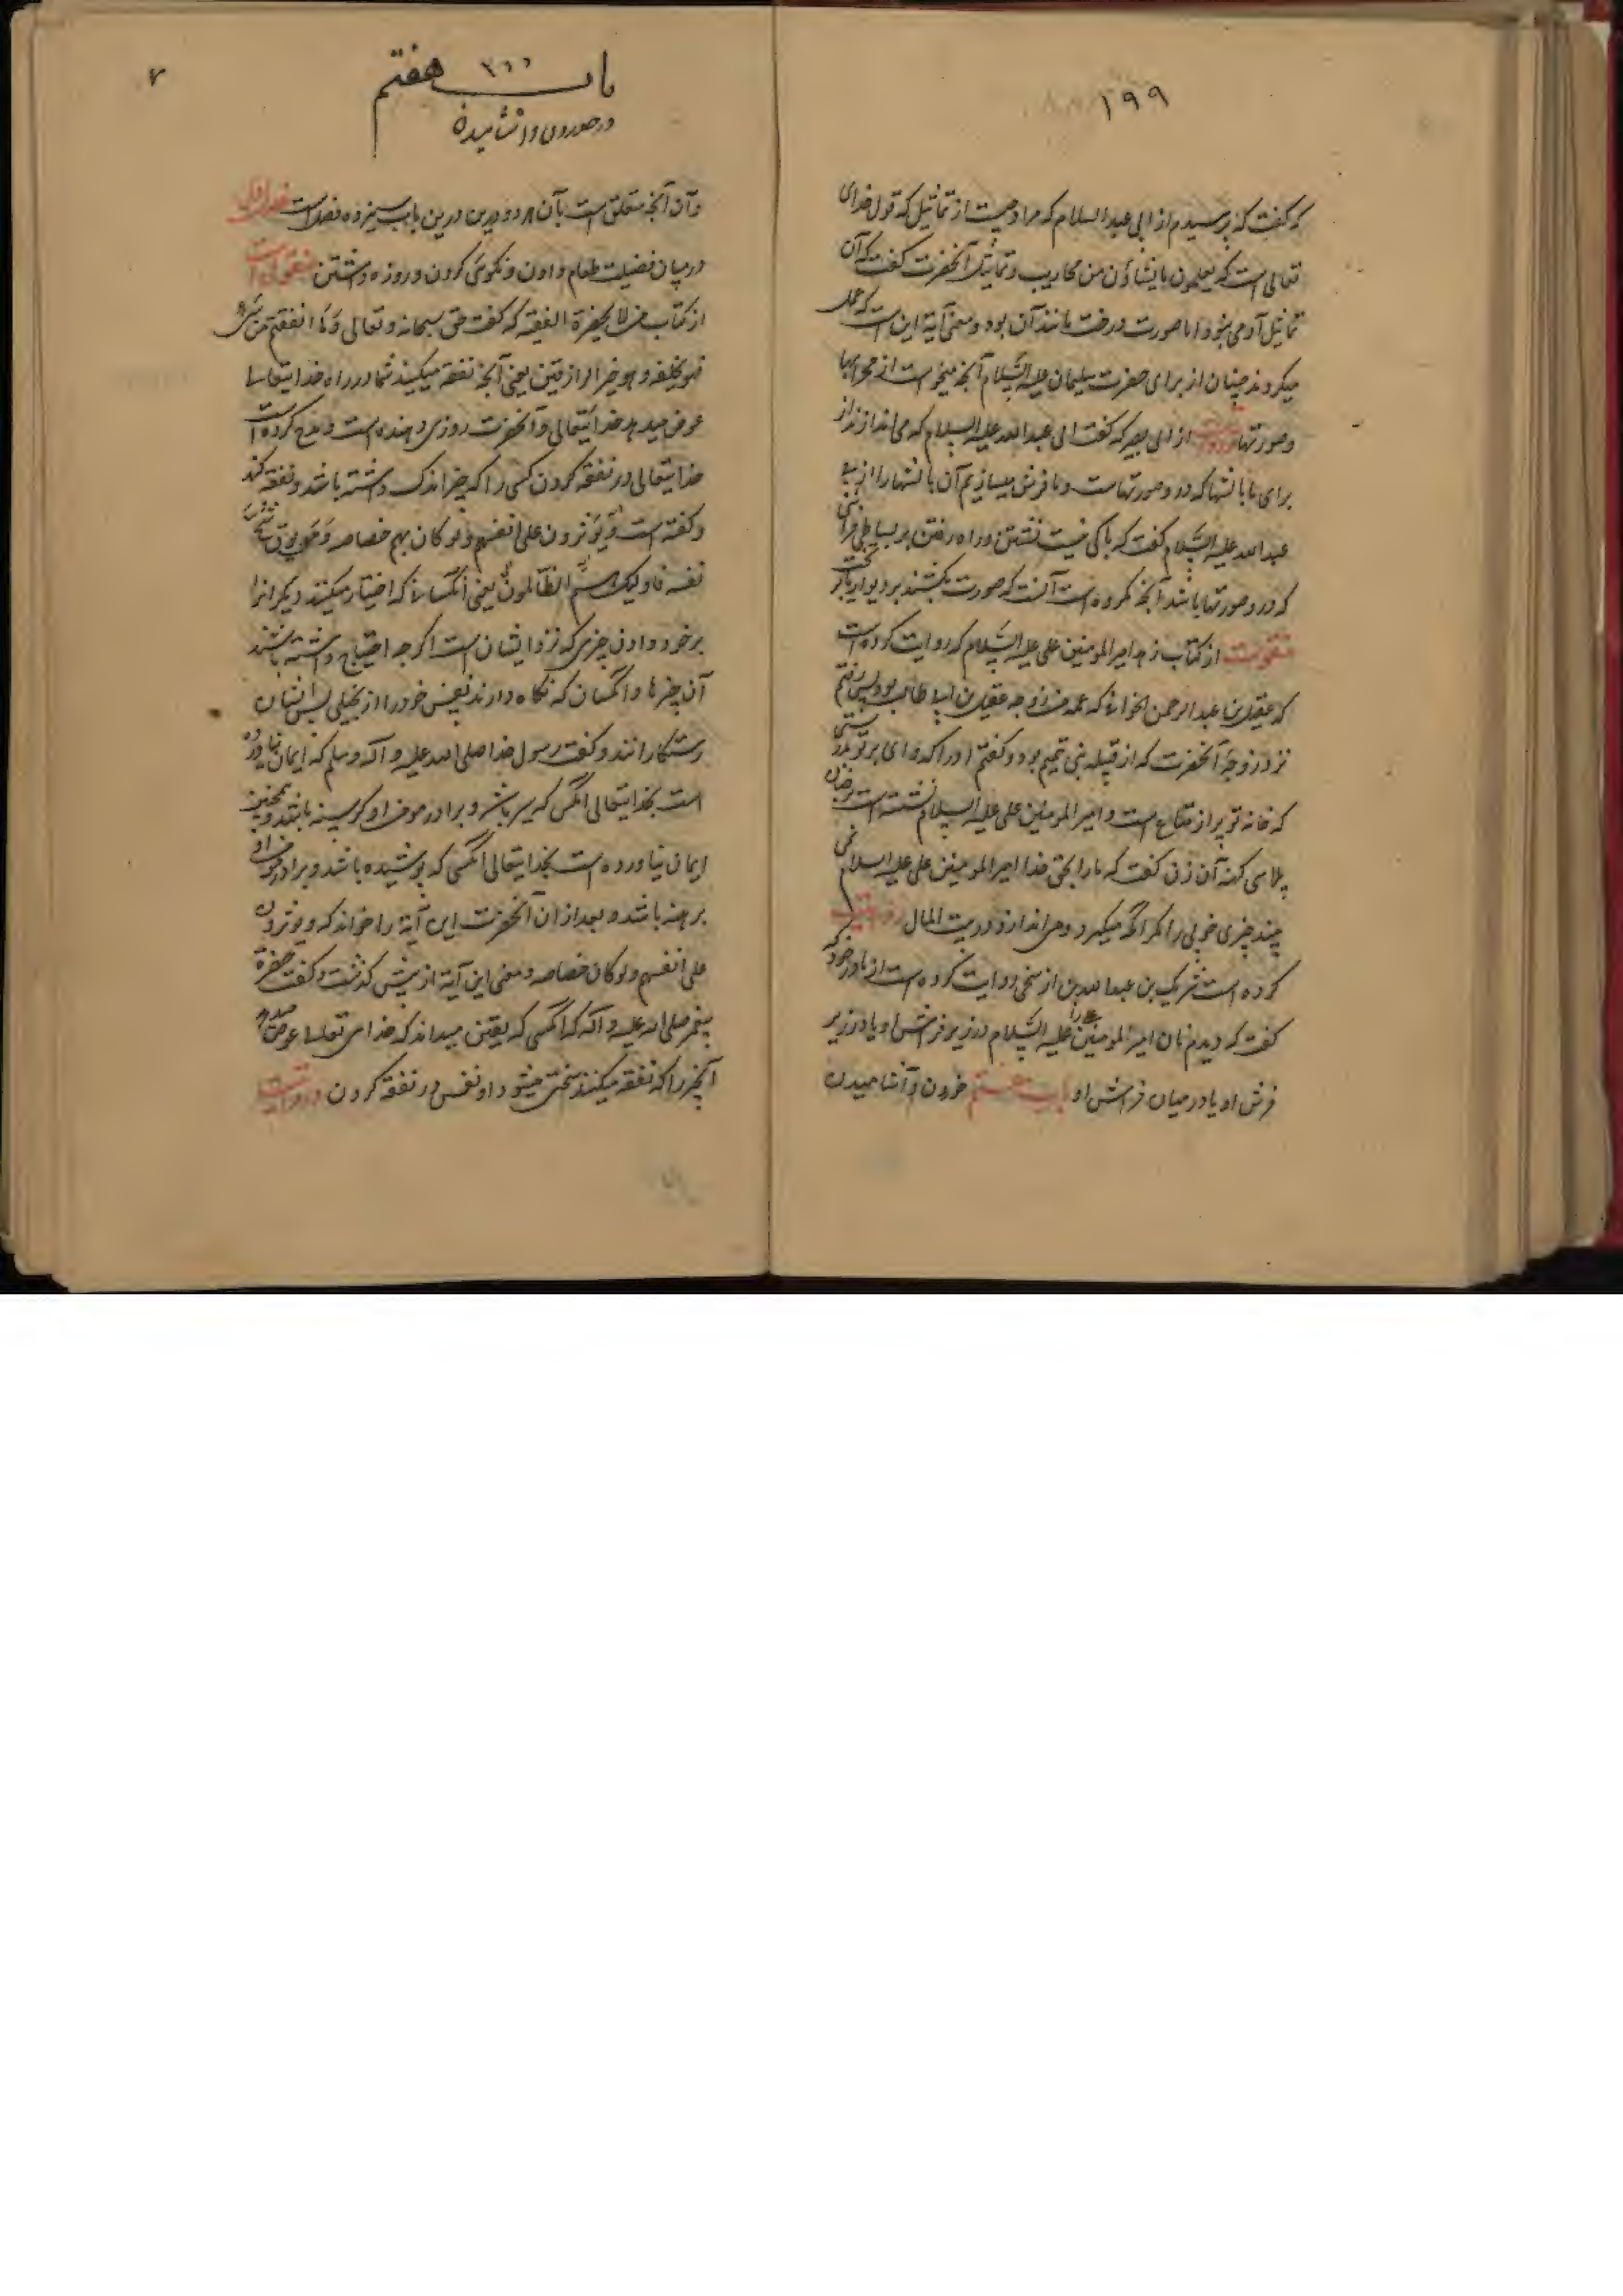 ۱۹۹
که گفت که پرسیدم از ابی عبد السلام که مراد چیست از تماثیل که قول خدای
تعالی است که یعملون ما یشاؤن من محاریب و تماثیل آنحضرت گفت که آن
تماثیل آدمی نبود اما صورت درخت مانند آن بود و معنی آیة این است که عمل
میکردند جنیان از برای حضرت سلیمان علیه السَّلام آنچه میخواست از محرابها
و صورتها از ابی بصیر که گفت ابی عبدالله علیه السلام که می اندازند از
برای ما بالشها که در و صورتهاست و ما فرش میسازیم آن بالشها را
عبدالله علیه السَّلام گفت که باکی نیست نشستن و راه رفتن بر بساطی
که در و صورتها باشد آنچه مکروه است آنست که صورت بکشند بر دیوار یا بر تخت
منقولست از کتاب زهد امیر المومنین علی علیه السَّلام که روایت کرده است
که عقیل بن عبدالرحمن الخولانی که عمه من زوجه عقیل بن ابیطالب بود پس رفتم
نزد زوجه آنحضرت که از قبیله بنی تمیم بود و گفتم او را که وای بر تو
که خانه تو پر از متاع است و امیر المومنین علی علیه السلام نشسته است بر
پلاسی کهنه آن زن گفت که ما را بحق خدا امیر المومنین علی علیه السلام نمی
چیزی خوبی را مگر آنکه میگیرد و می اندازد در بیت المال روایت
کرده است شریک بن عبدالله بن از روایت کرده است از مادر خود که
گفت که دیدم نان امیر المومنین را علیه السَّلام در زیر فرش او یا در زیر
فرش او یا در میان فرش او باب هفتم خوردن و آشامیدن
۷
۲۰۰
باب هفتم
در خوردن و آشامیدن
و آن آنچه متعلق است بآن هر دو درین باب سیزده فصل است فصل اول
در بیان فضیلت طعام دادن و نکویی کردن و روزه داشتن منقول است
از کتاب من لا یحضره الفقیه که گفت حق سبحانه و تعالی وَ ما انفقتم من شئ
فهو یخلفه و هو خیر الرازقین یعنی آنچه نفقه میکنید شما در راه خدایتعالی
عوض میدهد خدایتعالی و آنحضرت روزی دهنده است و مدح کرده است
خدایتعالی در نفقه کردن کسی را که چیز اندک داشته باشد و نفقه کند
و گفته است وَ یؤثرون علی انفسهم و لو کان بهم خصاصه وَ مَن یوق شح
نفسه فاولئک هم الظالمون یعنی آنکسانی که اختیار میکنند دیگرانرا
بر خود دادن چیزی که نزد ایشان است اگرچه احتیاج داشته باشند
آن چیزها و آنکسان که نگاه دارند نفس خود را از بخیلی پس ایشان
رستگارانند و گفت رسول خدا صلی الله علیه و آله و سلم که ایمان نیاورده
است بخدایتعالی آنکس که سیر باشد و برادر مومن او گرسنه باشد و همچنین
ایمان نیاورده است بخدایتعالی آنکسی که پوشیده باشد و برادر مومن او
برهنه باشد و بعد از آن آنحضرت این آیة را خواند که و یؤثرون
علی انفسهم و لو کان خصاصه و معنی این آیة از پیش گذشت و گفت حضرة
پیغمبر صلی الله علیه و آله که آنکسی که یقین میداند که خدای تعالی عوض میدهد
آنچیز را که نفقه میکند سخی میشود او نفس در نفقه کردن و روایت